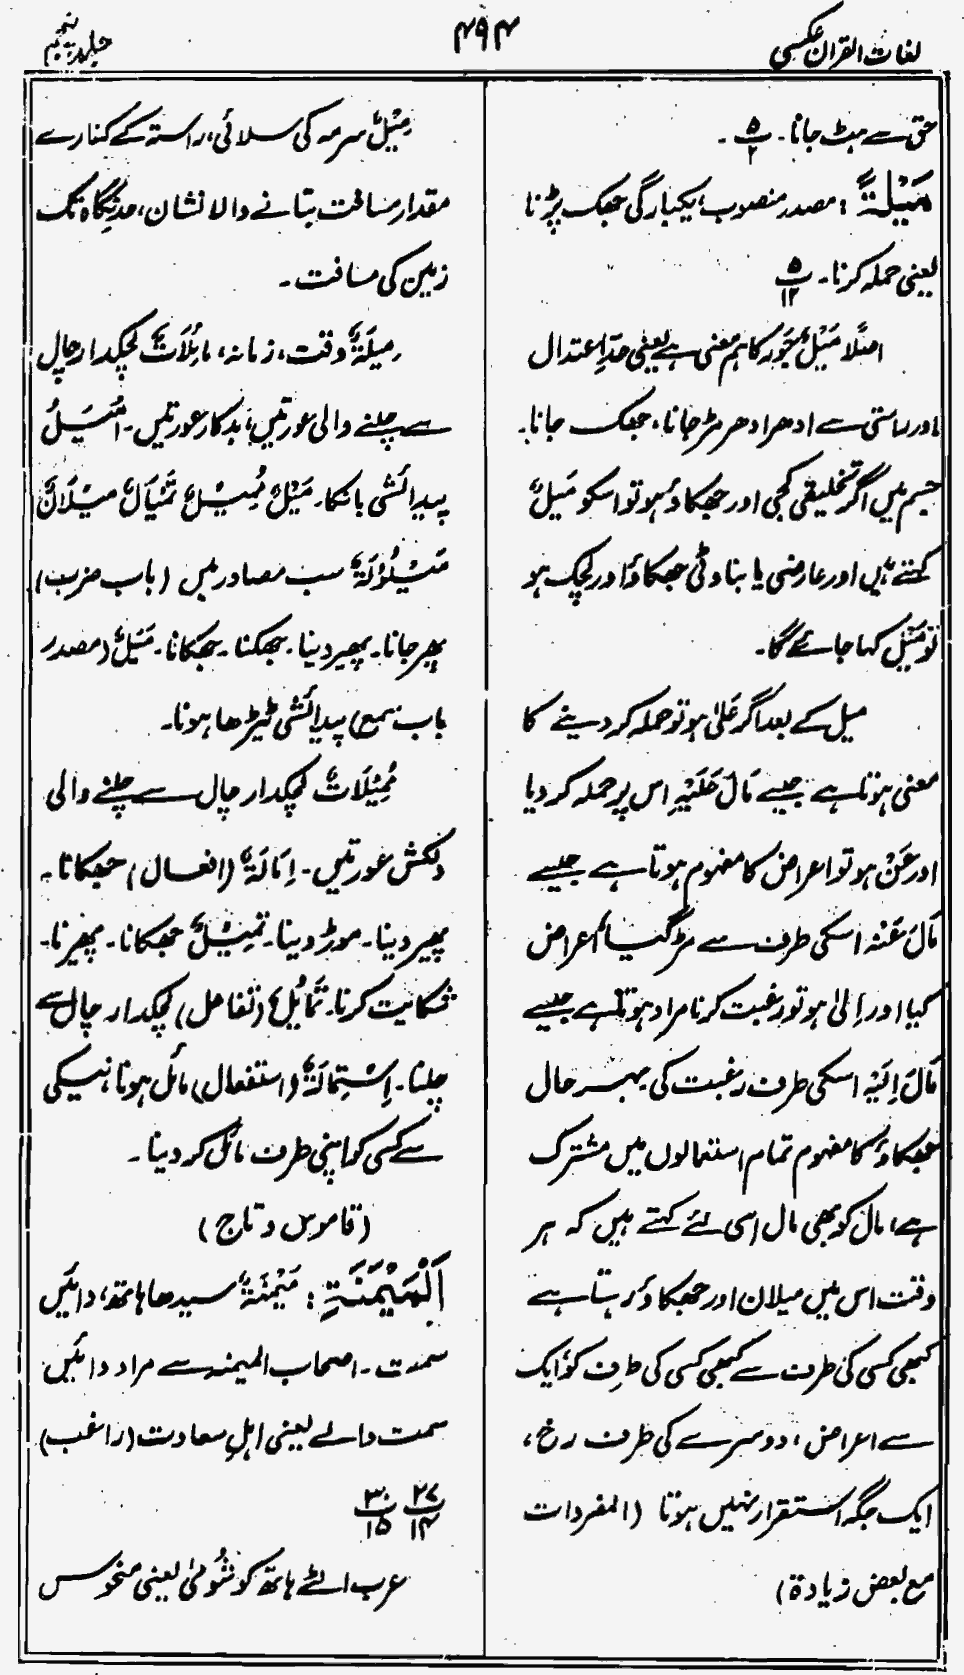 لغات القرآن عکسی
۴۹۴
جلد پنجم
حق سے ہٹ جانا۔ پ۵/۲ ۔
مَیْلَةً : مصدر منصوب، یکبارگی جھک پڑنا
یعنی حملہ کرنا۔ پ۵/۱۲
اصلًا مَیْلٌ جَوْرٌ کا ہم معنی ہے یعنی حدِّ اعتدال
اور راستی سے ادھر ادھر مڑ جانا، جھک جانا۔
جسم میں اگر تخلیقی کجی اور جھکاؤ ہو تو اسکو مَیَلٌ
کہتے ہیں اور عارضی یا بناوٹی جھکاؤ اور لچک ہو
تو مَیْلٌ کہا جائے گا۔
میل کے بعد اگر عَلیٰ ہو تو حملہ کر دینے کا
معنی ہوتا ہے جیسے مَالَ عَلَیْہِ اس پر حملہ کر دیا
اور عَنْ ہو تو اعراض کا مفہوم ہوتا ہے جیسے
مَالَ عَنْہُ اسکی طرف سے مڑ گیا اعراض
کیا اور اِلیٰ ہو تو رغبت کرنا مراد ہوتا ہے جیسے
مَالَ اِلَیْہِ اسکی طرف رغبت کی بہر حال
جھکاؤ کا مفہوم تمام استعمالوں میں مشترک
ہے، مال کو بھی مال اسی لئے کہتے ہیں کہ ہر
وقت اس میں میلان اور جھکاؤ رہتا ہے
کبھی کسی کی طرف سے کبھی کسی کی طرف کو، ایک
سے اعراض، دوسرے کی طرف رخ،
ایک جگہ استقرار نہیں ہوتا (المفردات
مع بعض زیادة)
مِیْلٌ سرمہ کی سلائی، راستہ کے کنارے
مقدار مسافت بتانے والا نشان، حد نگاہ تک
زمین کی مسافت۔
مِیلَةٌ وقت، زمانہ، مائِلَاتٌ لچکدار چال
سے چلنے والی عورتیں، بدکار عورتیں۔ اَمْیَلُ
پیدائشی بانکا۔ مَیْلٌ مَمِیْلٌ تَمْیَالٌ مَیَلَانٌ
مَیْلُوْلَةٌ سب مصادر ہیں (باب ضرب)
پھر جانا۔ پھیر دینا۔ جھکنا۔ جھکانا۔ مَیَلٌ (مصدر
باب سمع) پیدائشی ٹیڑھا ہونا۔
مُمِیْلَاتٌ لچکدار چال سے چلنے والی
دلکش عورتیں۔ اِمَالَةٌ (افعال) جھکانا۔
پھیر دینا۔ موڑ دینا۔ تَمْیِیْلٌ جھکانا۔ پھیرنا۔
شکایت کرنا۔ تَمَایُلٌ (تفاعل) لچکدار چال سے
چلنا۔ اِسْتِمَالَةٌ (استفعال) مائل ہونا نیکی
سے کسی کو اپنی طرف مائل کر دینا۔
(قاموس و تاج)
اَلْمَیْمَنَةِ : مَیْمَنَةٌ سیدھا ہاتھ، دائیں
سمت۔ اصحاب المیمنہ سے مراد دائیں
سمت والے یعنی اہلِ سعادت (راغب)
پ۲۷/۱۴ پ۳۰/۱۵
عرب الٹے ہاتھ کو شُومیٰ یعنی منحوس